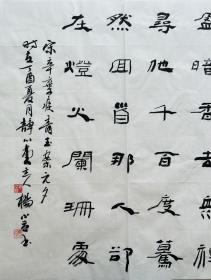 盈暗香去衆
尋他千百度驀
然回首那人卻
在燈火闌珊處
宋辛棄疾青玉案元夕
時在丁酉夏月靜主人楊書